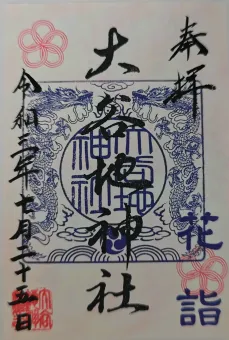 奉拝
花詣
大谷地神社
大谷地
神社
令和二年十月二十五日